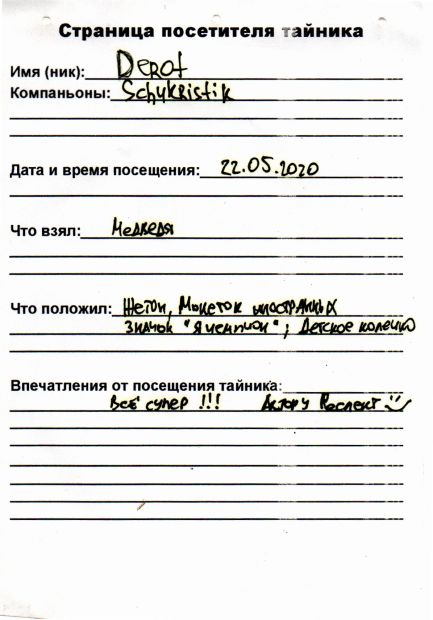 Страница посетителя тайника
Имя (ник): Derot
Компаньоны: Schykristik
Дата и время посещения: 22.05.2020
Что взял: Медведя
Что положил: Жетон, Монеток иностранных
значок "Я чемпион"; Детское колечко
Впечатления от посещения тайника:
Всё супер !!! Автору Респект